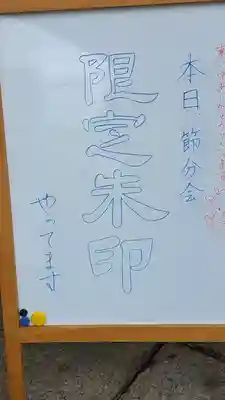 本日節分会
限定朱印
やってます